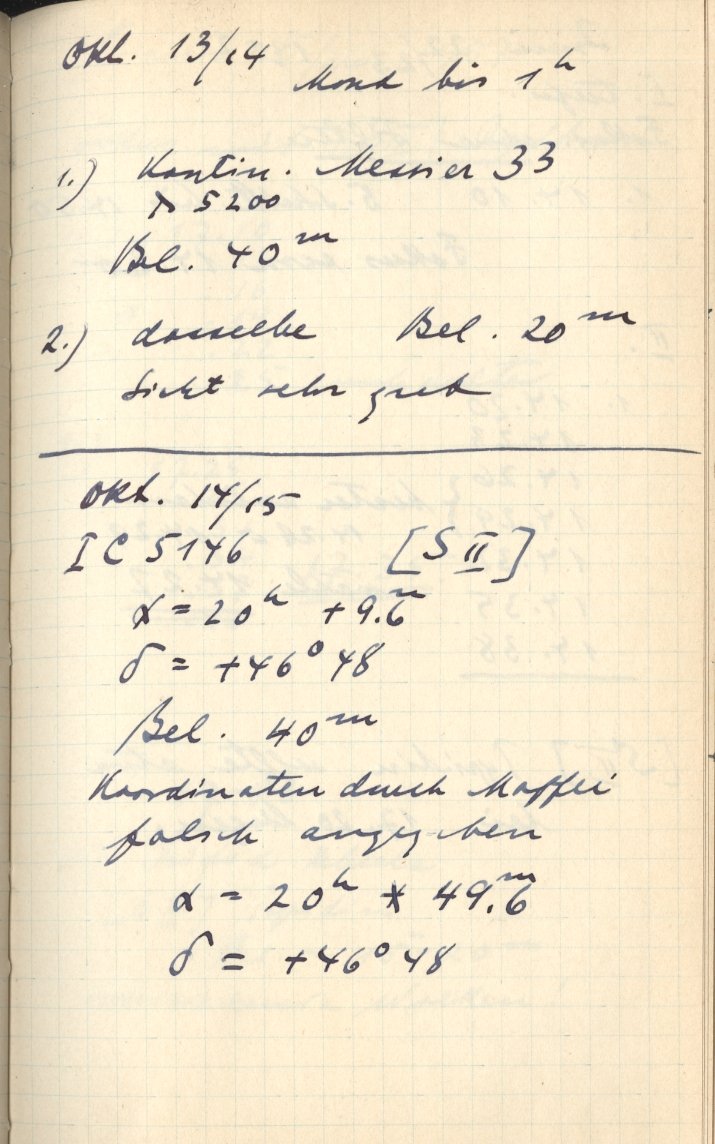 Okt. 13/14
Mond bis 1h
1.) Kontin. Messier 33
λ 5200
Bel. 40m
2.) dasselbe Bel. 20m
Sicht sehr gut
Okt. 14/15
IC 5146 [S II]
α = 20h +9.6m
δ = +46° 48
Bel. 40m
Koordinaten durch Maffei
falsch angegeben
α = 20h 49.6m
δ = +46° 48